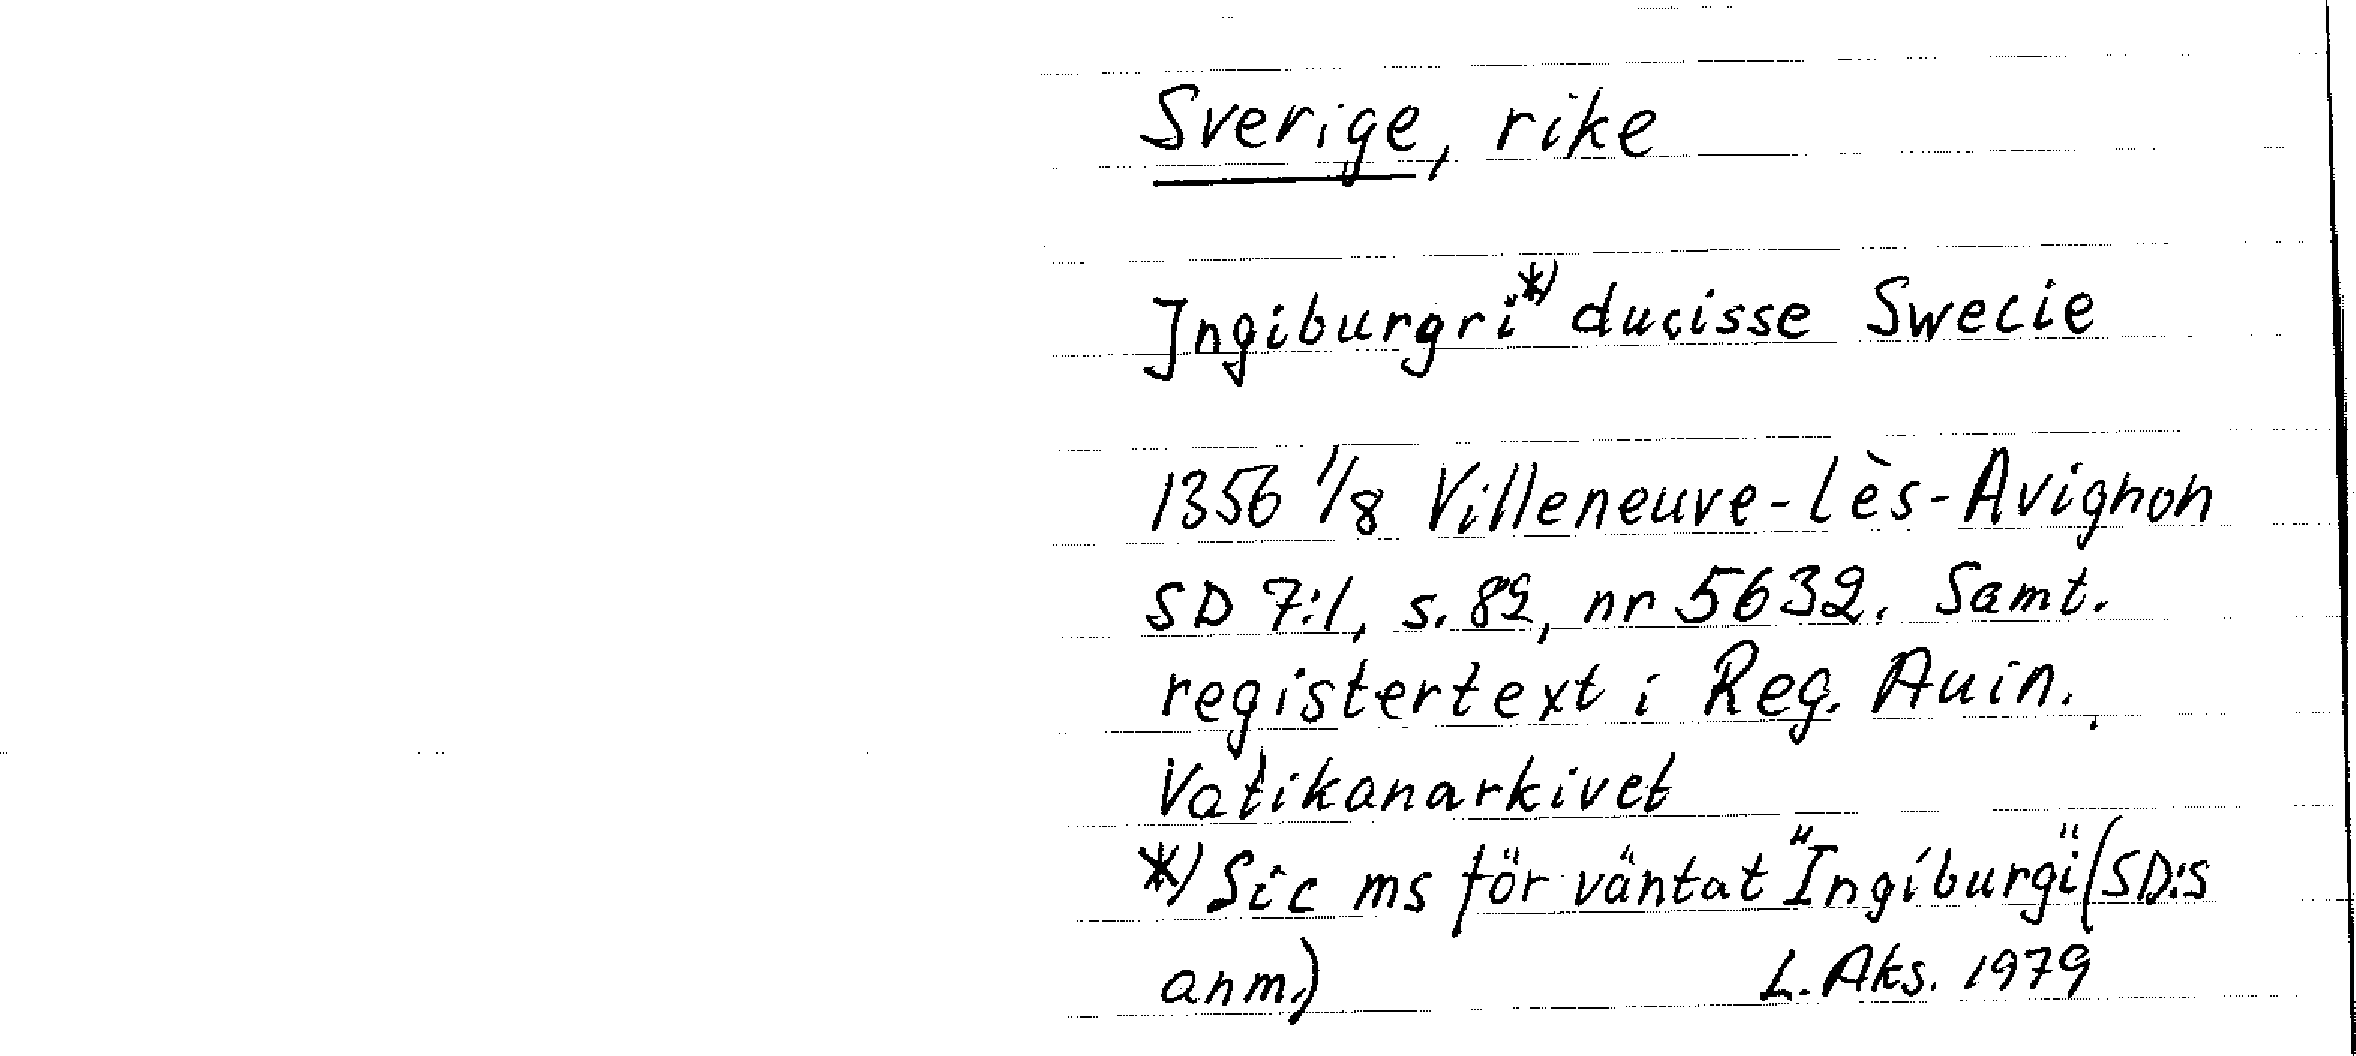 Sverige, rike
Ingiburgri*) ducisse Swecie
1356 1/8 Villeneuve-lès-Avignon
SD 7:1, s. 82, nr 5632. Samt.
registertext i Reg. Auin.,
Vatikanarkivet
*) Sic ms för väntat "Ingiburgi" (SD:s
anm.) L. Aks. 1979